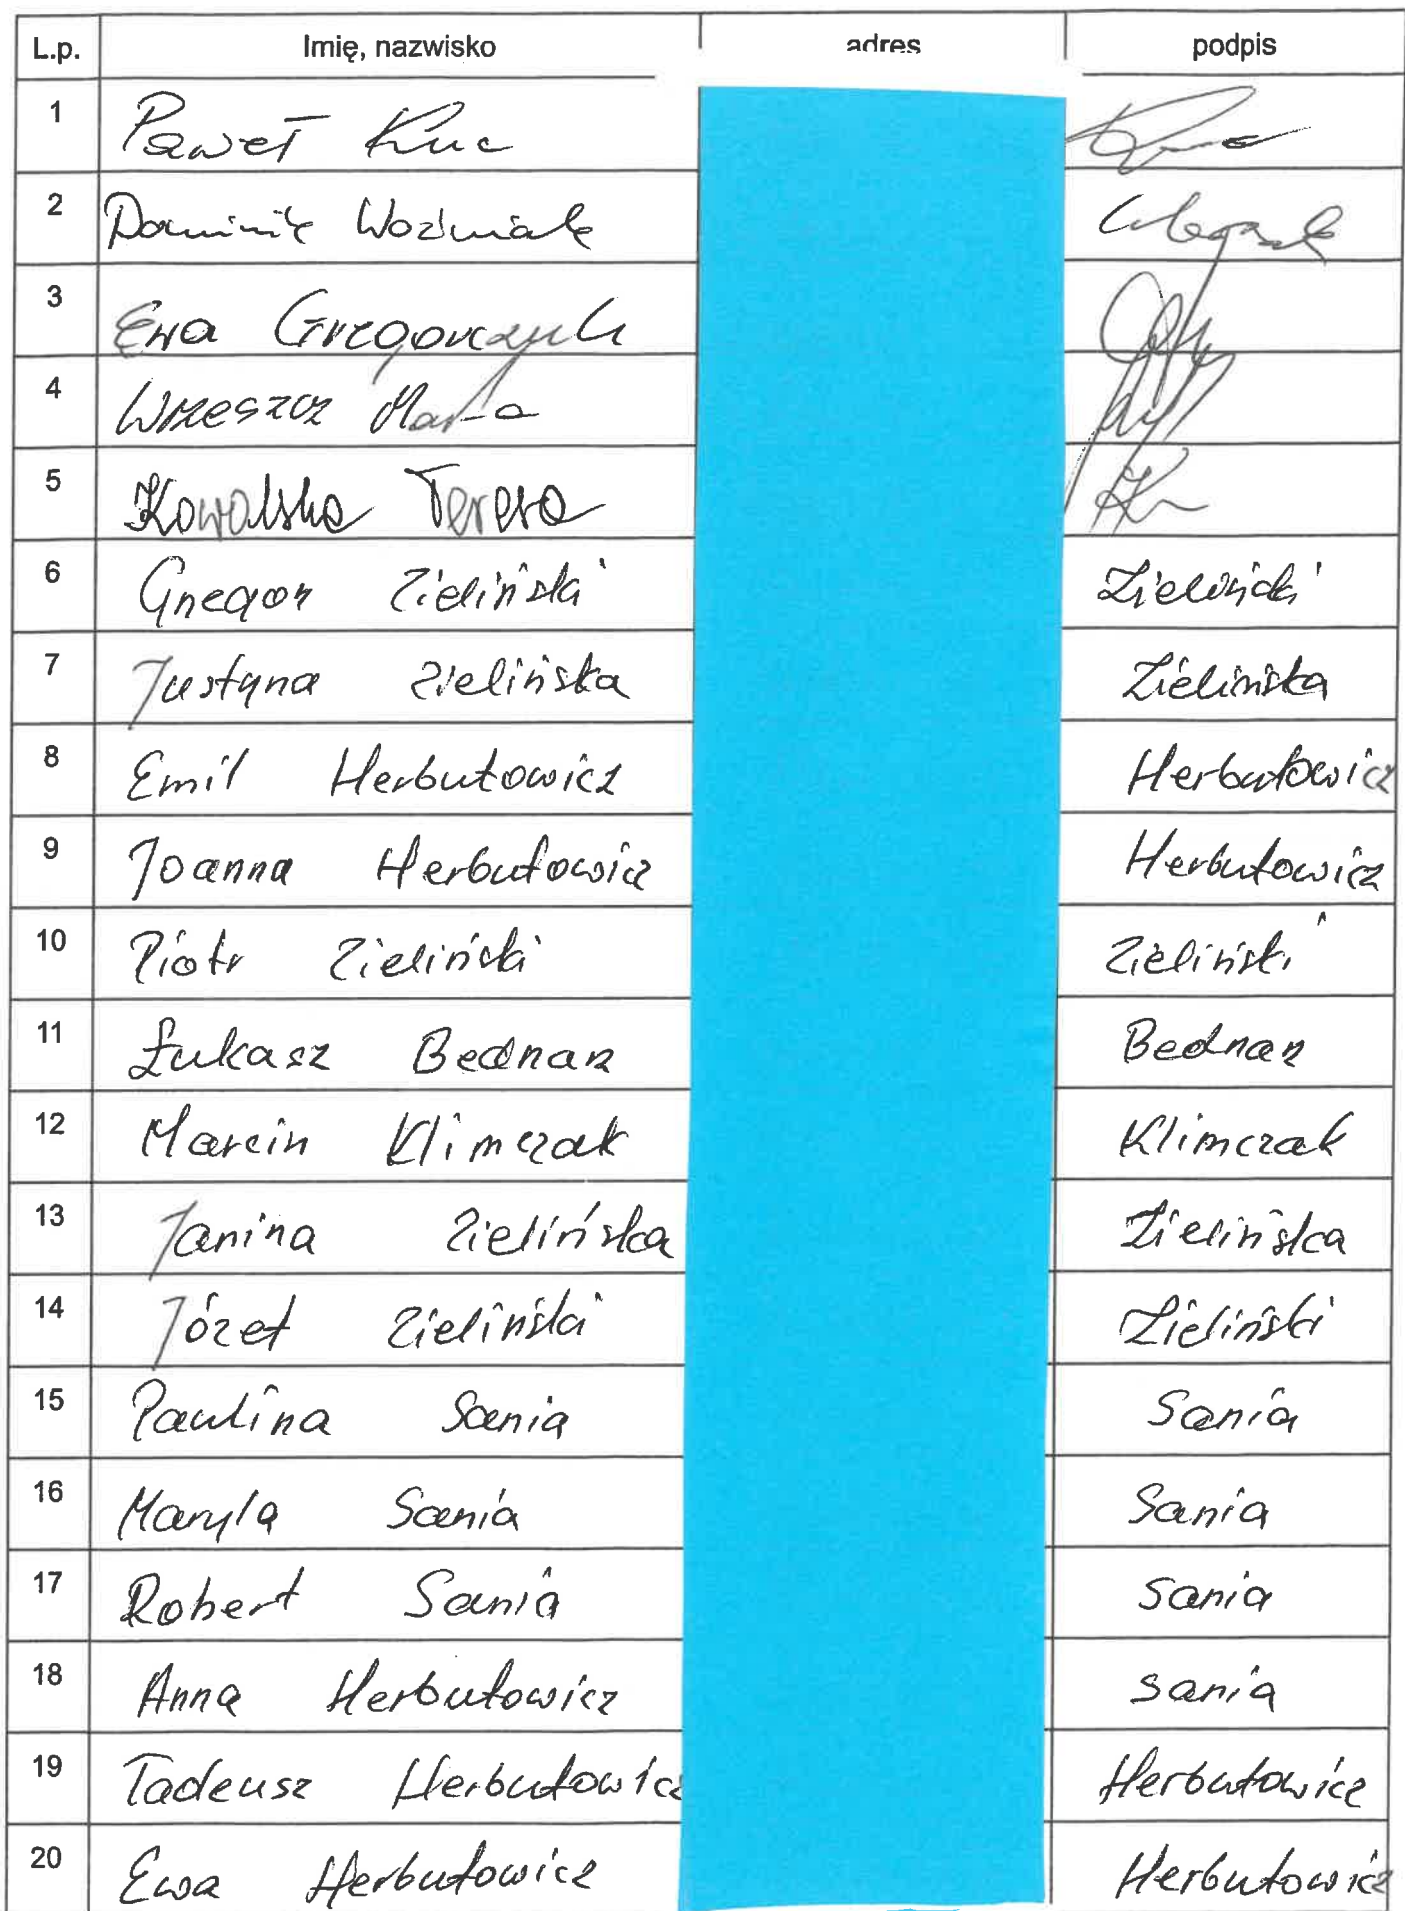 L.p. Imię, nazwisko adres podpis
1 Paweł Kuc
2 Dominik Woźniak
3 Ewa Grzegorczyk
4 Wrzeszcz Marta
5 Kowalska Teresa
6 Grzegorz Zieliński Zieliński
7 Justyna Zielińska Zielińska
8 Emil Herbutowicz Herbutowicz
9 Joanna Herbutowicz Herbutowicz
10 Piotr Zieliński Zieliński
11 Łukasz Bednarz Bednarz
12 Marcin Klimczak Klimczak
13 Janina Zielińska Zielińska
14 Józef Zieliński Zieliński
15 Paulina Sania Sania
16 Maryla Sania Sania
17 Robert Sania Sania
18 Anna Herbutowicz Sania
19 Tadeusz Herbutowicz Herbutowicz
20 Ewa Herbutowicz Herbutowicz